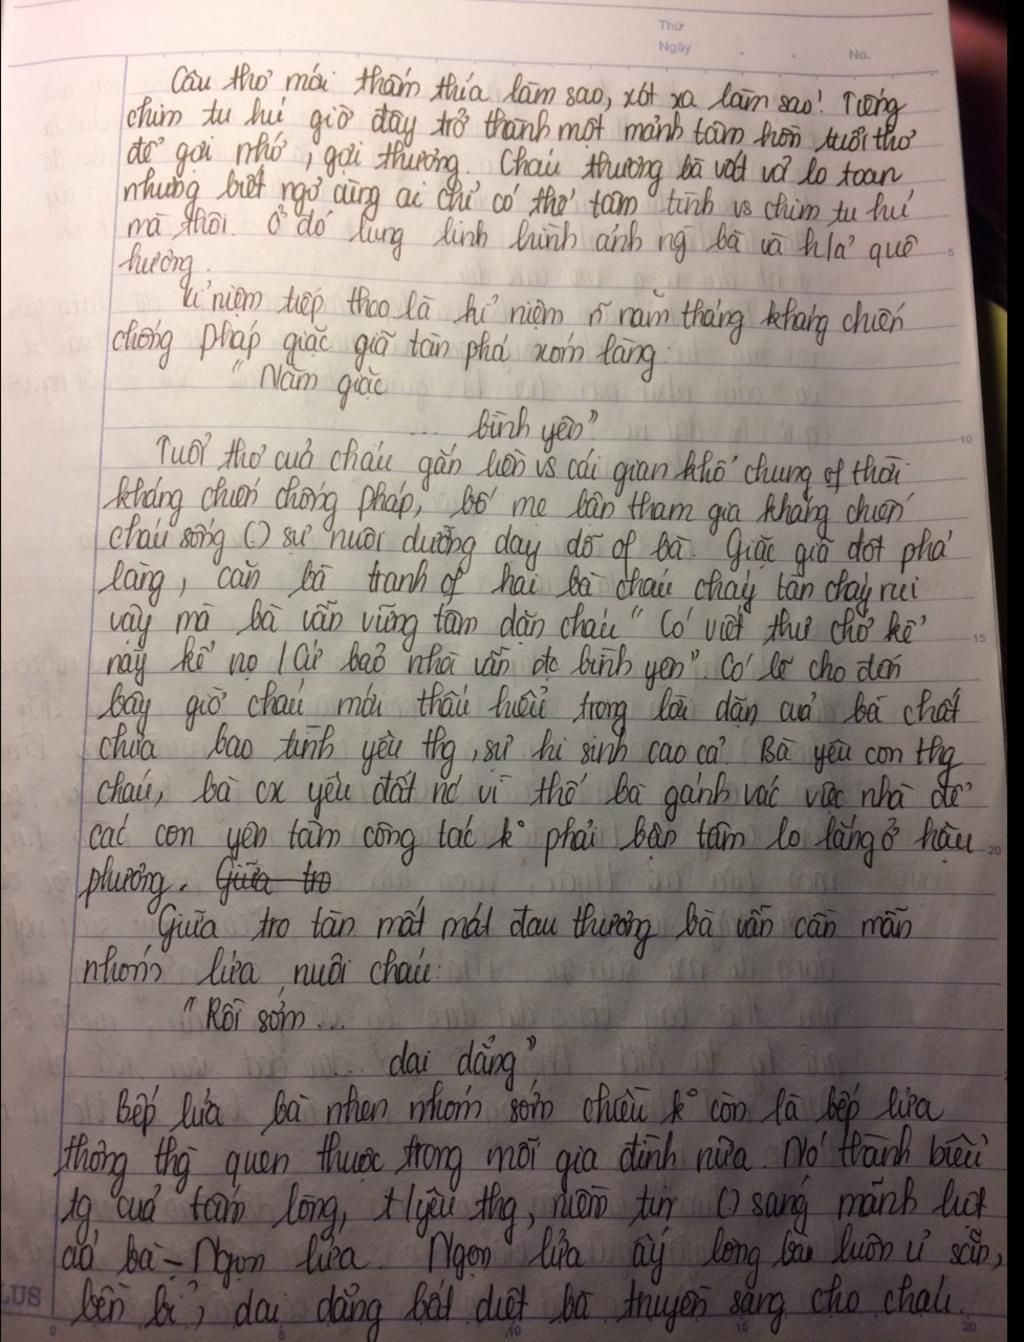 Thứ
Ngày . . No.
Câu thơ mới thấm thía làm sao, xót xa làm sao! Tiếng
chim tu hú giờ đây trở thành một mảnh tâm hồn tuổi thơ
để gợi nhớ, gợi thương. Cháu thương bà vất vả lo toan
nhưng biết ngỏ cùng ai chỉ có thơ tâm tình vs chim tu hú
mà thôi. Ở đó lung linh hình ảnh ng bà và h/a quê
hương.
Kỉ niệm tiếp theo là kỉ niệm n~ năm tháng kháng chiến
chống Pháp giặc giã tàn phá xóm làng:
"Năm giặc
... bình yên"
Tuổi thơ của cháu gắn liền vs cái gian khổ chung of thời
kháng chiến chống Pháp, bố mẹ bận tham gia kháng chiến
cháu sống () sự nuôi dưỡng dạy dỗ of bà. Giặc giã đốt phá
làng, căn bà tranh of hai bà cháu cháy tàn cháy rụi
vậy mà bà vẫn vững tâm dặn cháu "Có viết thư chớ kể
này kể nọ / Cứ bảo nhà vẫn đc bình yên". Có lẽ cho đến
bây giờ cháu mới thấu hiểu trong lời dặn của bà chất
chứa bao tình yêu thg, sự hi sinh cao cả. Bà yêu con thg
cháu, bà cx yêu đất nc vì thế bà gánh vác việc nhà để
các con yên tâm công tác k° phải bận tâm lo lắng ở hậu
phương. Giữa tro
Giữa tro tàn mất mát đau thương bà vẫn cần mẫn
nhóm lửa nuôi cháu:
"Rồi sớm...
... dai dẳng"
Bếp lửa bà nhen nhóm sớm chiều k° còn là bếp lửa
thông thg quen thuộc trong mỗi gia đình nữa. Nó thành biểu
tg của tấm lòng, t/yêu thg, niềm tin () sáng mãnh liệt
của bà - Ngọn lửa. Ngọn lửa ấy lòng bà luôn ủ sẵn,
bền bỉ, dai dẳng bất diệt bà truyền sang cho cháu.
LUS
5
10
15
20
0 5 10 15 20